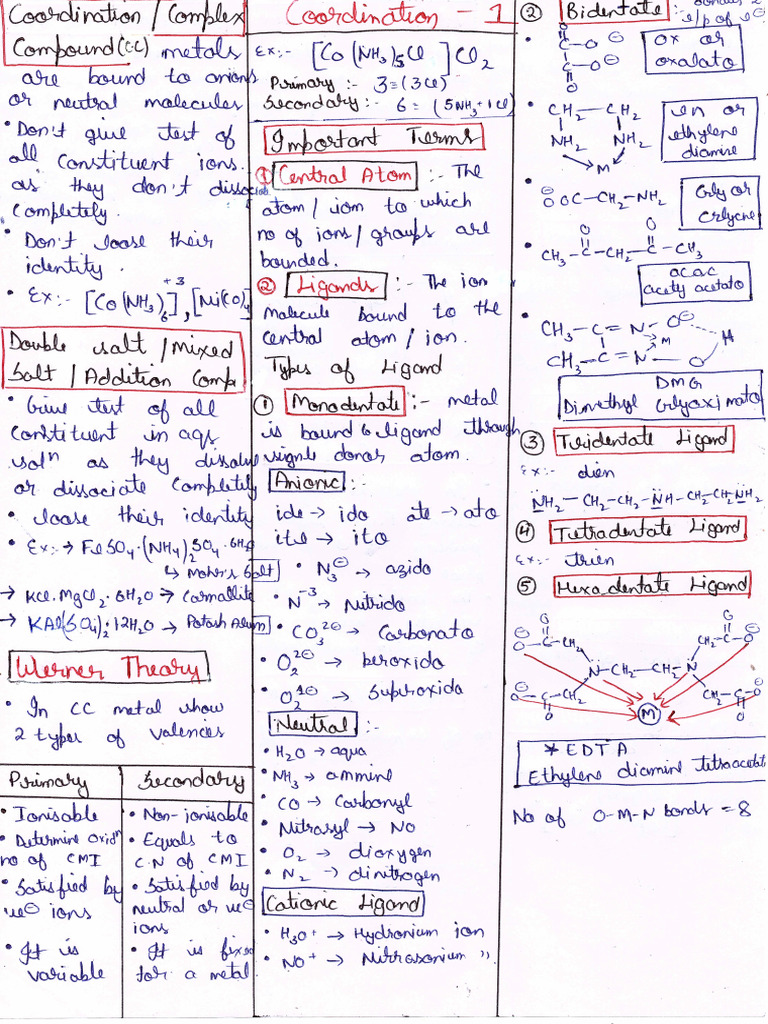 Coordination / Complex
Compound (CC) metals
are bound to anions
or neutral molecules
• Don't give test of
all constituent ions.
as they don't dissociate
completely.
• Don't loose their
identity.
• Ex:- [Co(NH3)6]+3, [Ni(CO)4]
Double salt / Mixed
Salt / Addition Comp
• Give test of all
constituent in aqs
soln as they dissolve
or dissociate completely
• loose their identity
• Ex:→ FeSO4.(NH4)2SO4.6H2O
↳ Mohr's Salt
→ KCl.MgCl2.6H2O → Carnallite
→ KAl(SO4)2.12H2O → Potash Alum
Werner Theory
• In CC metal show
2 types of valencies
Primary
• Ionisable
• Determine Oxidn
no of CMI
• Satisfied by
-ve⊖ ions
• It is
variable
Secondary
• Non-ionisable
• Equals to
C.N of CMI
• Satisfied by
neutral or -ve⊖
ions
• It is fixed
for a metal
Coordination - 1
Ex:- [Co(NH3)5Cl]Cl2
Primary :- 3 = (3Cl)
Secondary :- 6 = (5NH3+1Cl)
Important Terms
① Central Atom :- The
atom / ion to which
no of ions / groups are
bounded.
② Ligands :- The ion
molecule bound to the
central atom / ion.
Types of Ligand
① Monodentate :- metal
is bound to ligand through
single donar atom.
Anionic :-
ide → ido ate → ato
ite → ito
• N3⊖ → azido
• N-3 → Nitrido
• CO3 2⊖ → Carbonato
• O2 2⊖ → peroxido
• O2 1⊖ → Superoxido
Neutral :-
• H2O → aqua
• NH3 → ammine
• CO → Carbonyl
• Nitrosyl → NO
• O2 → dioxygen
• N2 → dinitrogen
Cationic Ligand
• H3O+ → Hydronium ion
• NO+ → Nitrosonium "
② Bidentate: donates 2
e/p of e⊖
• C-O⊖
C-O⊖
O
O
Ox or
oxalato
• CH2 — CH2
NH2 NH2
M
en or
ethylene
diamine
• ⊖OOC-CH2-NH2
Gly or
Glycine
• O O
CH3-C-CH2-C-CH3
acac
acety acetato
• CH3-C=N-O⊖ H
M
CH3-C=N-O
DMG
Dimethyl Glyoximato
③ Tridentate Ligand
Ex:- dien
NH2-CH2-CH2-NH-CH2-CH2-NH2
④ Tetradentate Ligand
Ex:- trien
⑤ Hexadentate Ligand
O O
⊖O-C-CH2 CH2-C-O⊖
N-CH2-CH2-N
⊖O-C-CH2 CH2-C-O⊖
O M O
* EDTA
Ethylene diamine tetraacetato
No of O-M-N bonds = 8